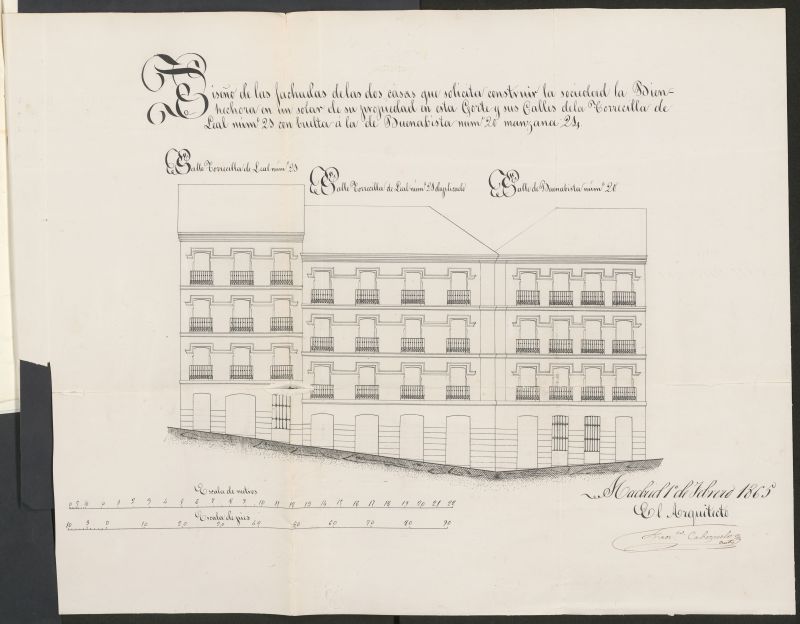 Diseño de las fachadas de las dos casas que solicita construir la sociedad la Bien-
hechora en un solar de su propiedad en esta Corte y sus Calles de la Torrecilla de
Leal núm.º 23 con buelta á la de Buenabista num.º 20 manzana 24.
Calle Torrecilla de Leal núm.º 23
Calle Torrecilla de Leal núm.º 23 duplicado
Calle de Buenabista núm.º 20
Escala de metros
Escala de pies
10 5 0 10 20 30 40 50 60 70 80 90
Madrid 1º de Febrero 1865
El Arquitecto